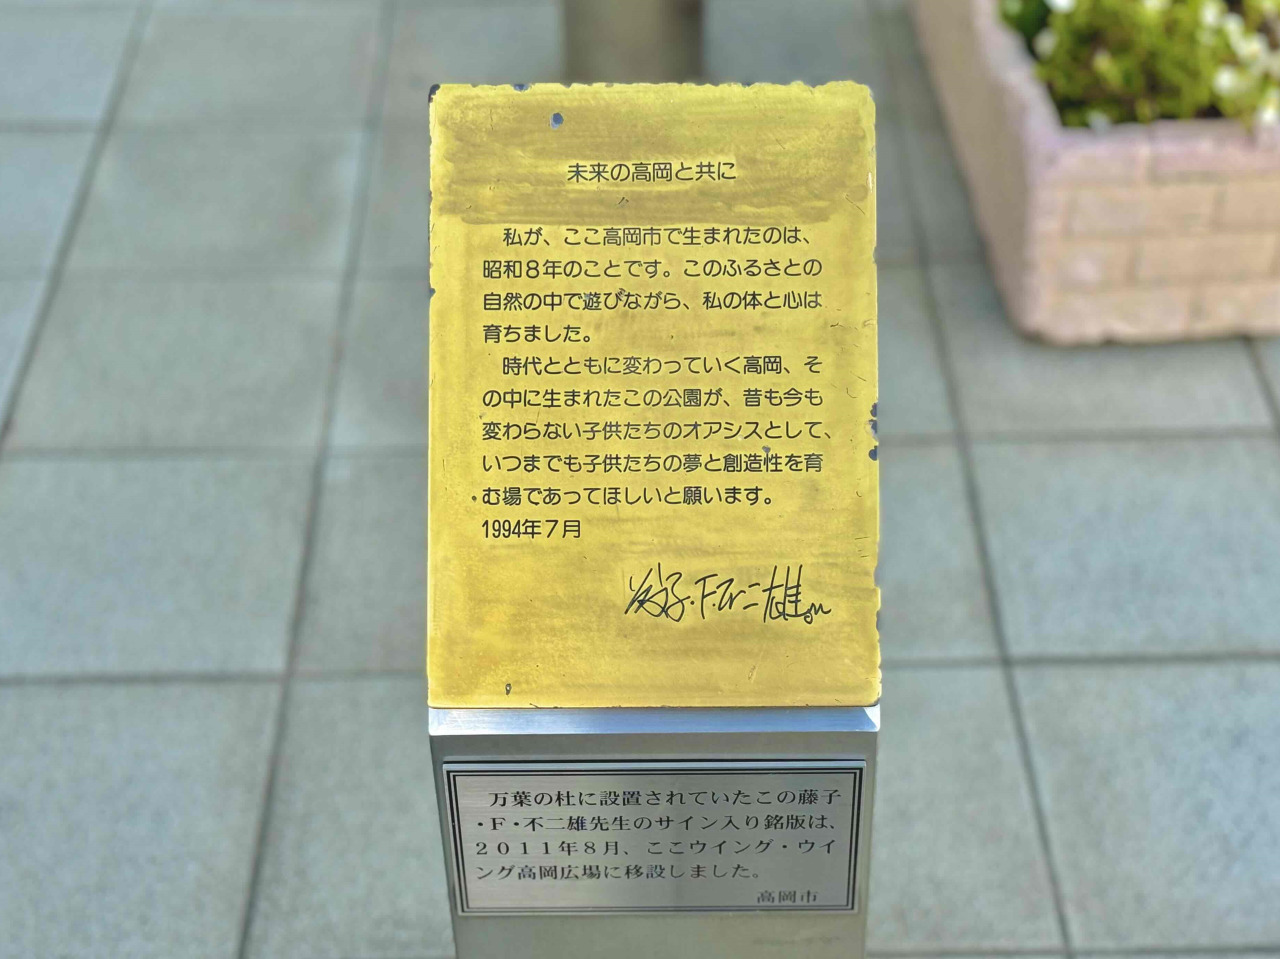 未来の高岡と共に
私が、ここ高岡市で生まれたのは、
昭和8年のことです。このふるさとの
自然の中で遊びながら、私の体と心は
育ちました。
時代とともに変わっていく高岡、そ
の中に生まれたこの公園が、昔も今も
変わらない子供たちのオアシスとして、
いつまでも子供たちの夢と創造性を育
む場であってほしいと願います。
1994年7月
藤子・F・不二雄
万葉の杜に設置されていたこの藤子
・F・不二雄先生のサイン入り銘版は、
2011年8月、ここウイング・ウイ
ング高岡広場に移設しました。
高岡市